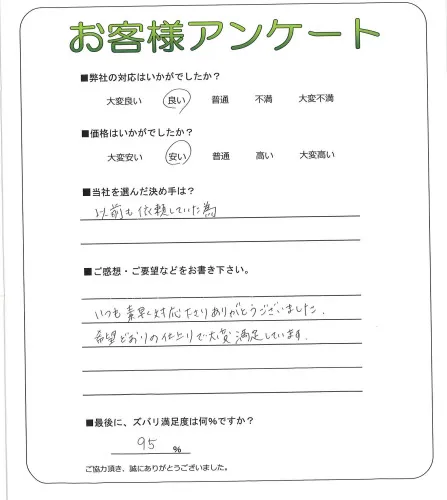 お客様アンケート
■弊社の対応はいかがでしたか？
大変良い 良い 普通 不満 大変不満
■価格はいかがでしたか？
大変安い 安い 普通 高い 大変高い
■当社を選んだ決め手は？
以前も依頼していた為
■ご感想・ご要望などをお書き下さい。
いつも素早く対応下さりありがとうございました。
希望どおりの仕上りで大変満足しています。
■最後に、ズバリ満足度は何%ですか？
95 %
ご協力頂き、誠にありがとうございました。